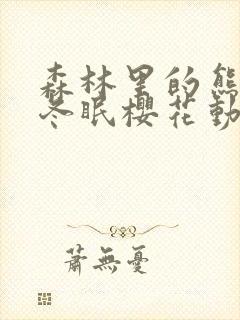 森林里的熊
冬眠櫻花動
蕭無憂